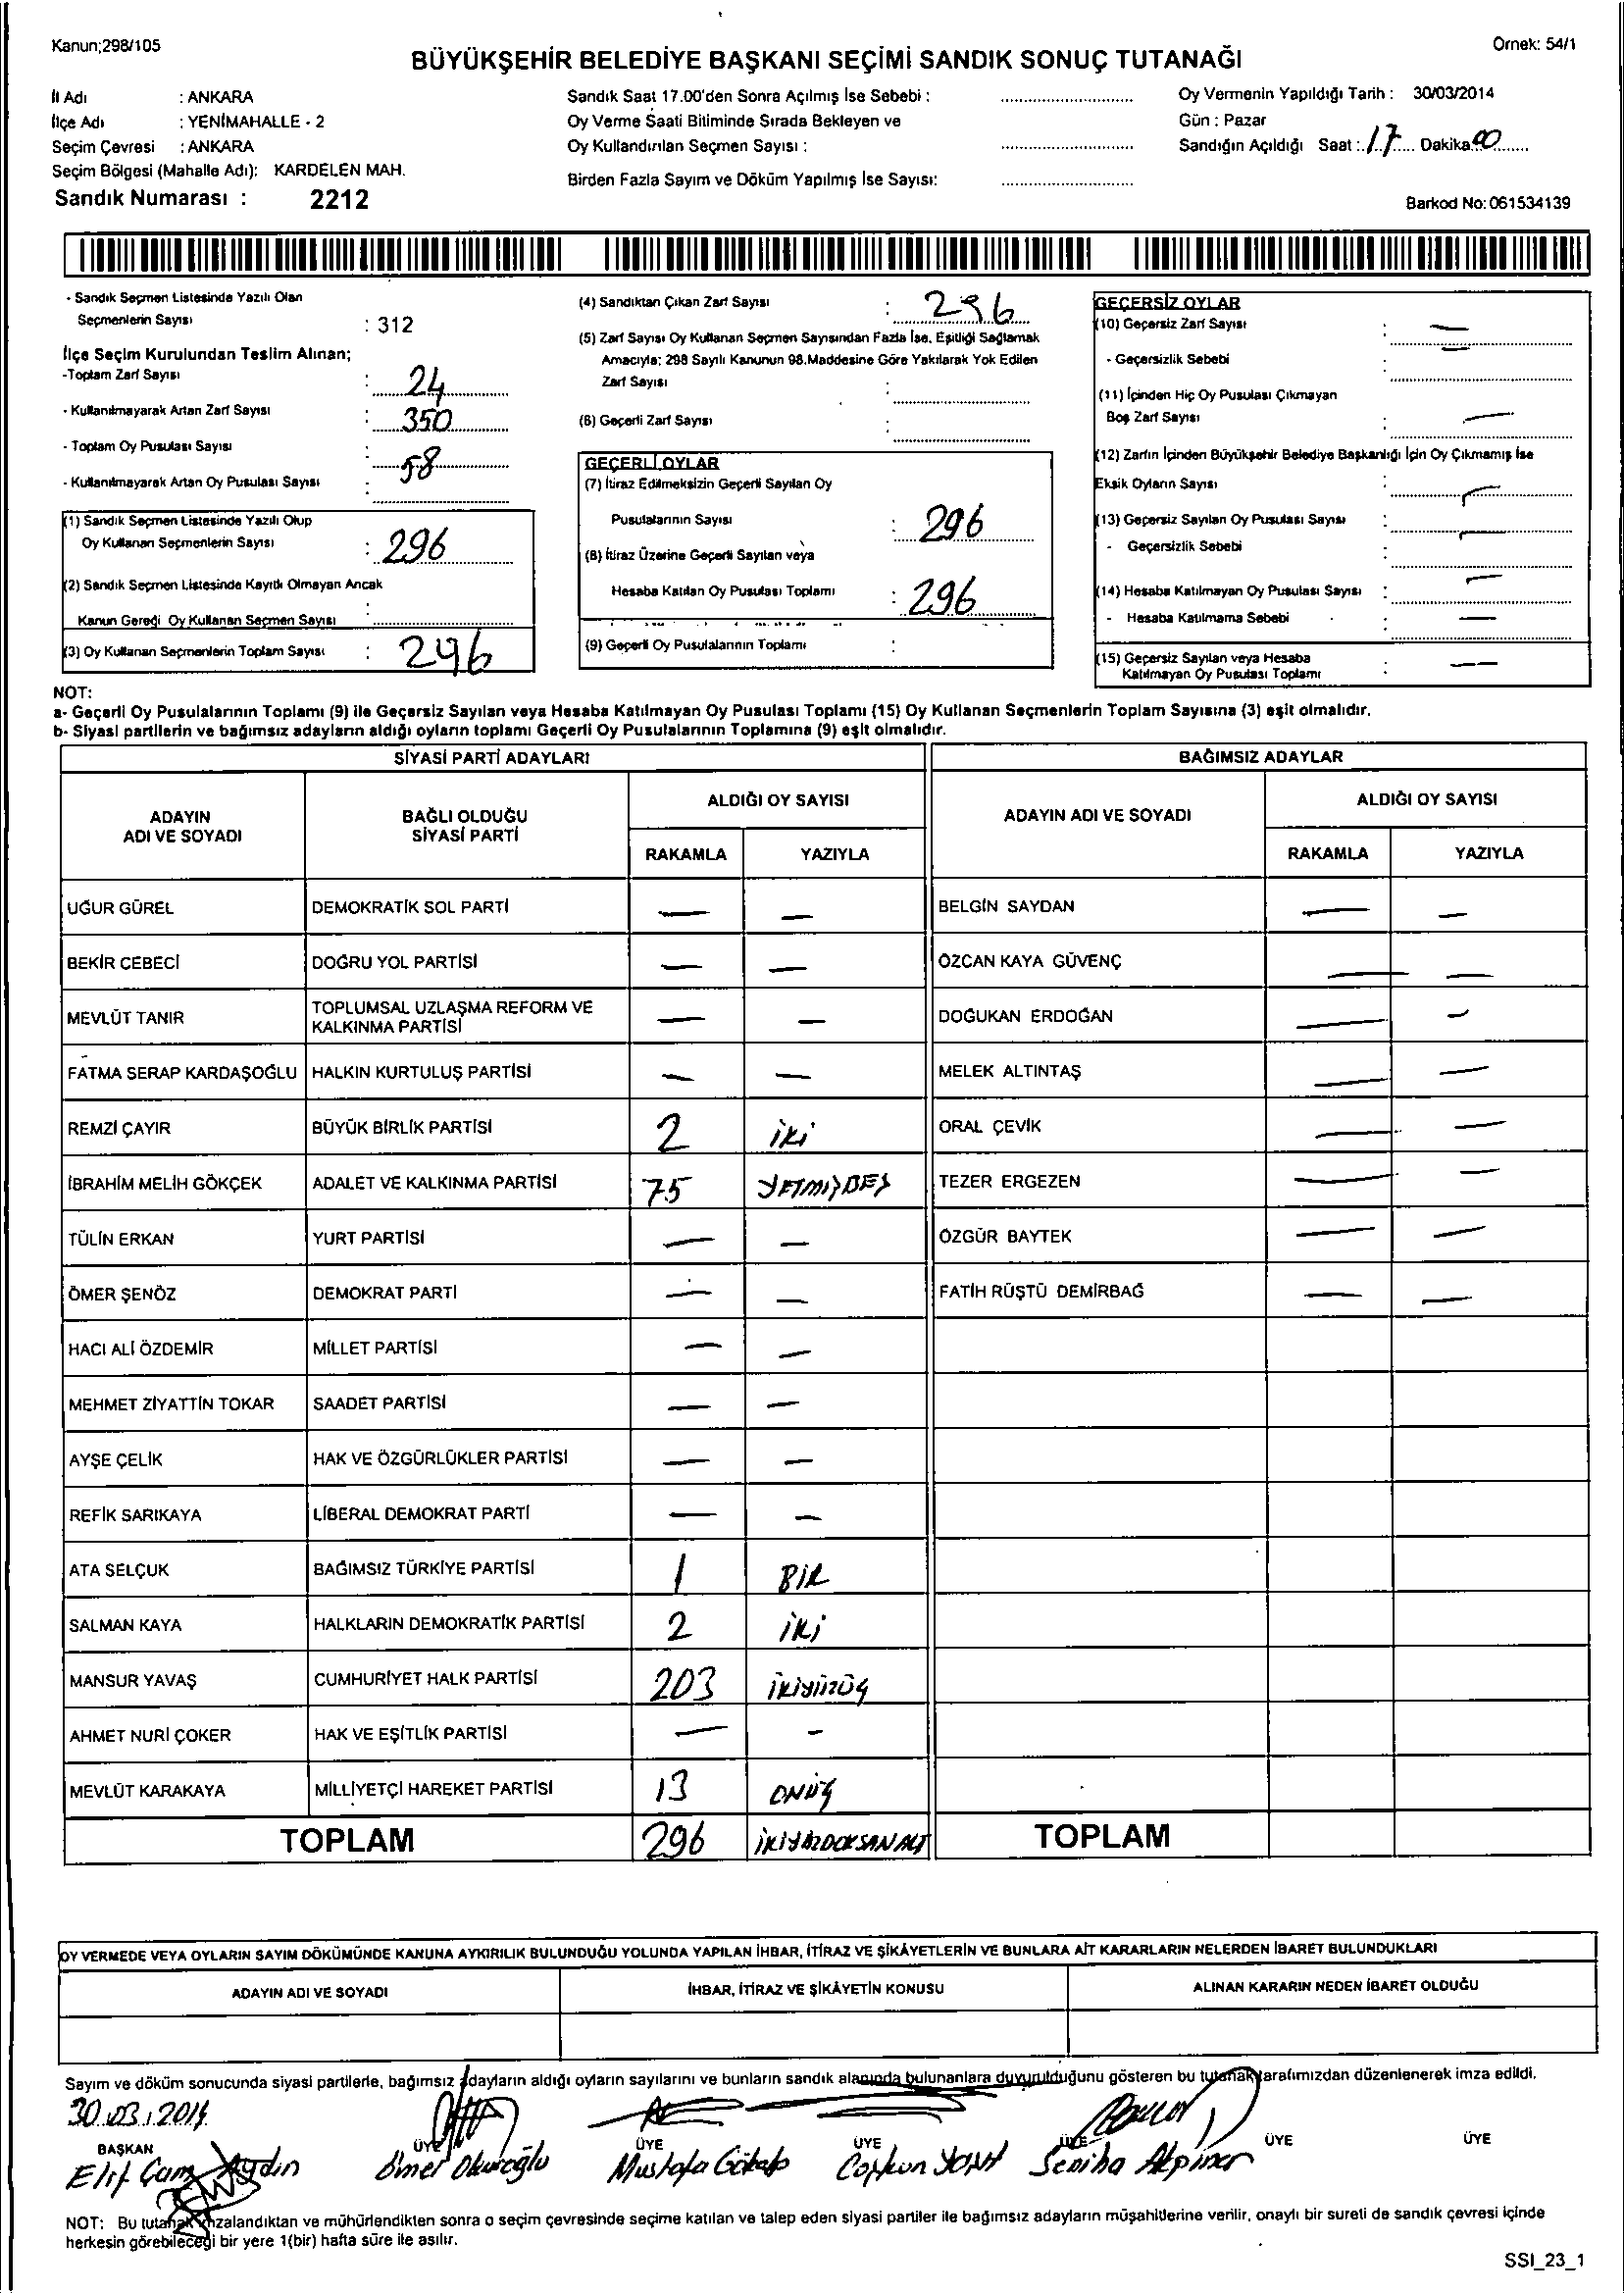 Kanun;298/105
Örnek: 54/1
BÜYÜKŞEHİR BELEDİYE BAŞKANI SEÇİMİ SANDIK SONUÇ TUTANAĞI
İl Adı : ANKARA
İlçe Adı : YENİMAHALLE - 2
Seçim Çevresi : ANKARA
Seçim Bölgesi (Mahalle Adı): KARDELEN MAH.
Sandık Numarası : 2212
Sandık Saat 17.00'den Sonra Açılmış İse Sebebi :
Oy Verme Saati Bitiminde Sırada Bekleyen ve
Oy Kullandırılan Seçmen Sayısı :
Birden Fazla Sayım ve Döküm Yapılmış İse Sayısı:
Oy Vermenin Yapıldığı Tarih : 30/03/2014
Gün : Pazar
Sandığın Açıldığı Saat : 17 Dakika 00
Barkod No: 061534139
- Sandık Seçmen Listesinde Yazılı Olan
Seçmenlerin Sayısı : 312
İlçe Seçim Kurulundan Teslim Alınan;
-Toplam Zarf Sayısı : 24
- Kullanılmayarak Artan Zarf Sayısı : 350
- Toplam Oy Pusulası Sayısı : 58
- Kullanılmayarak Artan Oy Pusulası Sayısı :
(1) Sandık Seçmen Listesinde Yazılı Olup
Oy Kullanan Seçmenlerin Sayısı : 296
(2) Sandık Seçmen Listesinde Kayıtlı Olmayan Ancak
Kanun Gereği Oy Kullanan Seçmen Sayısı :
(3) Oy Kullanan Seçmenlerin Toplam Sayısı : 296
(4) Sandıktan Çıkan Zarf Sayısı : 296
(5) Zarf Sayısı Oy Kullanan Seçmen Sayısından Fazla İse, Eşitliği Sağlamak
Amacıyla; 298 Sayılı Kanunun 98.Maddesine Göre Yakılarak Yok Edilen
Zarf Sayısı :
(6) Geçerli Zarf Sayısı :
GEÇERLİ OYLAR
(7) İtiraz Edilmeksizin Geçerli Sayılan Oy
Pusulalarının Sayısı : 296
(8) İtiraz Üzerine Geçerli Sayılan veya
Hesaba Katılan Oy Pusulası Toplamı : 296
(9) Geçerli Oy Pusulalarının Toplamı :
GEÇERSİZ OYLAR
(10) Geçersiz Zarf Sayısı : —
- Geçersizlik Sebebi : —
(11) İçinden Hiç Oy Pusulası Çıkmayan
Boş Zarf Sayısı : —
(12) Zarfın İçinden Büyükşehir Belediye Başkanlığı İçin Oy Çıkmamış İse
Eksik Oyların Sayısı : —
(13) Geçersiz Sayılan Oy Pusulası Sayısı : —
- Geçersizlik Sebebi :
(14) Hesaba Katılmayan Oy Pusulası Sayısı : —
- Hesaba Katılmama Sebebi : —
(15) Geçersiz Sayılan veya Hesaba
Katılmayan Oy Pusulası Toplamı : —
NOT:
a- Geçerli Oy Pusulalarının Toplamı (9) ile Geçersiz Sayılan veya Hesaba Katılmayan Oy Pusulası Toplamı (15) Oy Kullanan Seçmenlerin Toplam Sayısına (3) eşit olmalıdır.
b- Siyasi partilerin ve bağımsız adayların aldığı oyların toplamı Geçerli Oy Pusulalarının Toplamına (9) eşit olmalıdır.
SİYASİ PARTİ ADAYLARI BAĞIMSIZ ADAYLAR
ADAYIN ADI VE SOYADI BAĞLI OLDUĞU SİYASİ PARTİ ALDIĞI OY SAYISI ADAYIN ADI VE SOYADI ALDIĞI OY SAYISI
RAKAMLA YAZIYLA RAKAMLA YAZIYLA
UĞUR GÜREL DEMOKRATİK SOL PARTİ — — BELGİN SAYDAN — —
BEKİR CEBECİ DOĞRU YOL PARTİSİ — — ÖZCAN KAYA GÜVENÇ — —
MEVLÜT TANIR TOPLUMSAL UZLAŞMA REFORM VE KALKINMA PARTİSİ — — DOĞUKAN ERDOĞAN — —
FATMA SERAP KARDAŞOĞLU HALKIN KURTULUŞ PARTİSİ — — MELEK ALTINTAŞ — —
REMZİ ÇAYIR BÜYÜK BİRLİK PARTİSİ 2 iki ORAL ÇEVİK — —
İBRAHİM MELİH GÖKÇEK ADALET VE KALKINMA PARTİSİ 75 YETMİŞBEŞ TEZER ERGEZEN — —
TÜLİN ERKAN YURT PARTİSİ — — ÖZGÜR BAYTEK — —
ÖMER ŞENÖZ DEMOKRAT PARTİ — — FATİH RÜŞTÜ DEMİRBAĞ — —
HACI ALİ ÖZDEMİR MİLLET PARTİSİ — —
MEHMET ZİYATTİN TOKAR SAADET PARTİSİ — —
AYŞE ÇELİK HAK VE ÖZGÜRLÜKLER PARTİSİ — —
REFİK SARIKAYA LİBERAL DEMOKRAT PARTİ — —
ATA SELÇUK BAĞIMSIZ TÜRKİYE PARTİSİ 1 BİR
SALMAN KAYA HALKLARIN DEMOKRATİK PARTİSİ 2 iki
MANSUR YAVAŞ CUMHURİYET HALK PARTİSİ 203 ikiyüzüç
AHMET NURİ ÇOKER HAK VE EŞİTLİK PARTİSİ — -
MEVLÜT KARAKAYA MİLLİYETÇİ HAREKET PARTİSİ 13 ONÜÇ
TOPLAM 296 İKİYÜZDOKSANALTI TOPLAM
OY VERMEDE VEYA OYLARIN SAYIM DÖKÜMÜNDE KANUNA AYKIRILIK BULUNDUĞU YOLUNDA YAPILAN İHBAR, İTİRAZ VE ŞİKÂYETLERİN VE BUNLARA AİT KARARLARIN NELERDEN İBARET BULUNDUKLARI
ADAYIN ADI VE SOYADI İHBAR, İTİRAZ VE ŞİKÂYETİN KONUSU ALINAN KARARIN NEDEN İBARET OLDUĞU
Sayım ve döküm sonucunda siyasi partilerle, bağımsız adayların aldığı oyların sayılarını ve bunların sandık alanında bulunanlara duyurulduğunu gösteren bu tutanak tarafımızdan düzenlenerek imza edildi.
30.03.2014
BAŞKAN ÜYE ÜYE ÜYE ÜYE ÜYE ÜYE
Elif Çam Aydın Ömer Okuroğlu Mustafa Coşkun Seniha Akpınar
NOT: Bu tutanak imzalandıktan ve mühürlendikten sonra o seçim çevresinde seçime katılan ve talep eden siyasi partiler ile bağımsız adayların müşahitlerine verilir, onaylı bir sureti de sandık çevresi içinde
herkesin görebileceği bir yere 1(bir) hafta süre ile asılır.
SSI_23_1